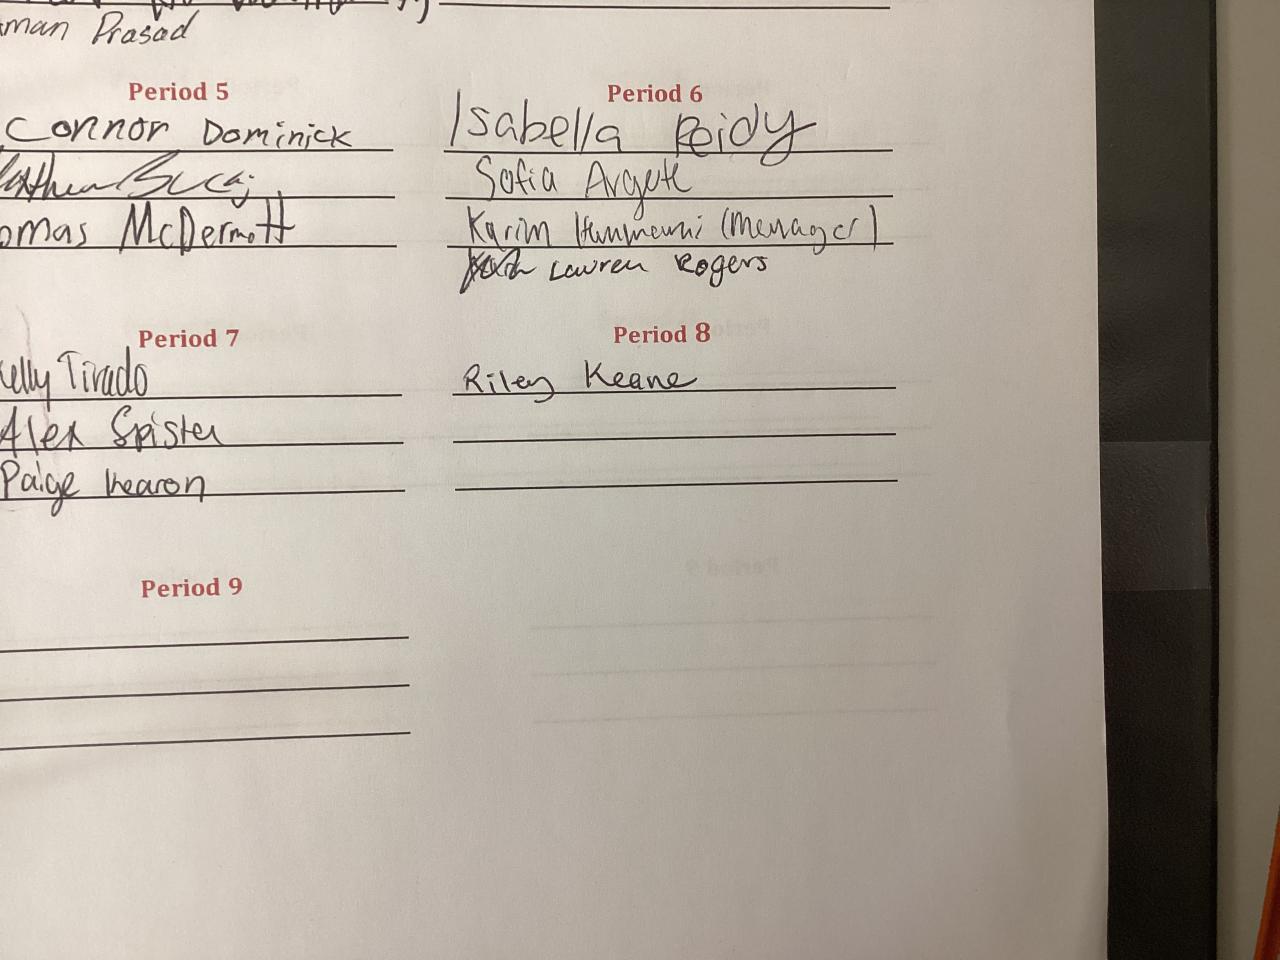 man Prasad
Period 5
Connor Dominick
omas McDermott
Period 6
Isabella Reidy
Sofia Argete
Karim (Manager)
Lauren Rogers
Period 7
Kelly Tirado
Alex Spister
Paige Kearon
Period 8
Riley Keane
Period 9